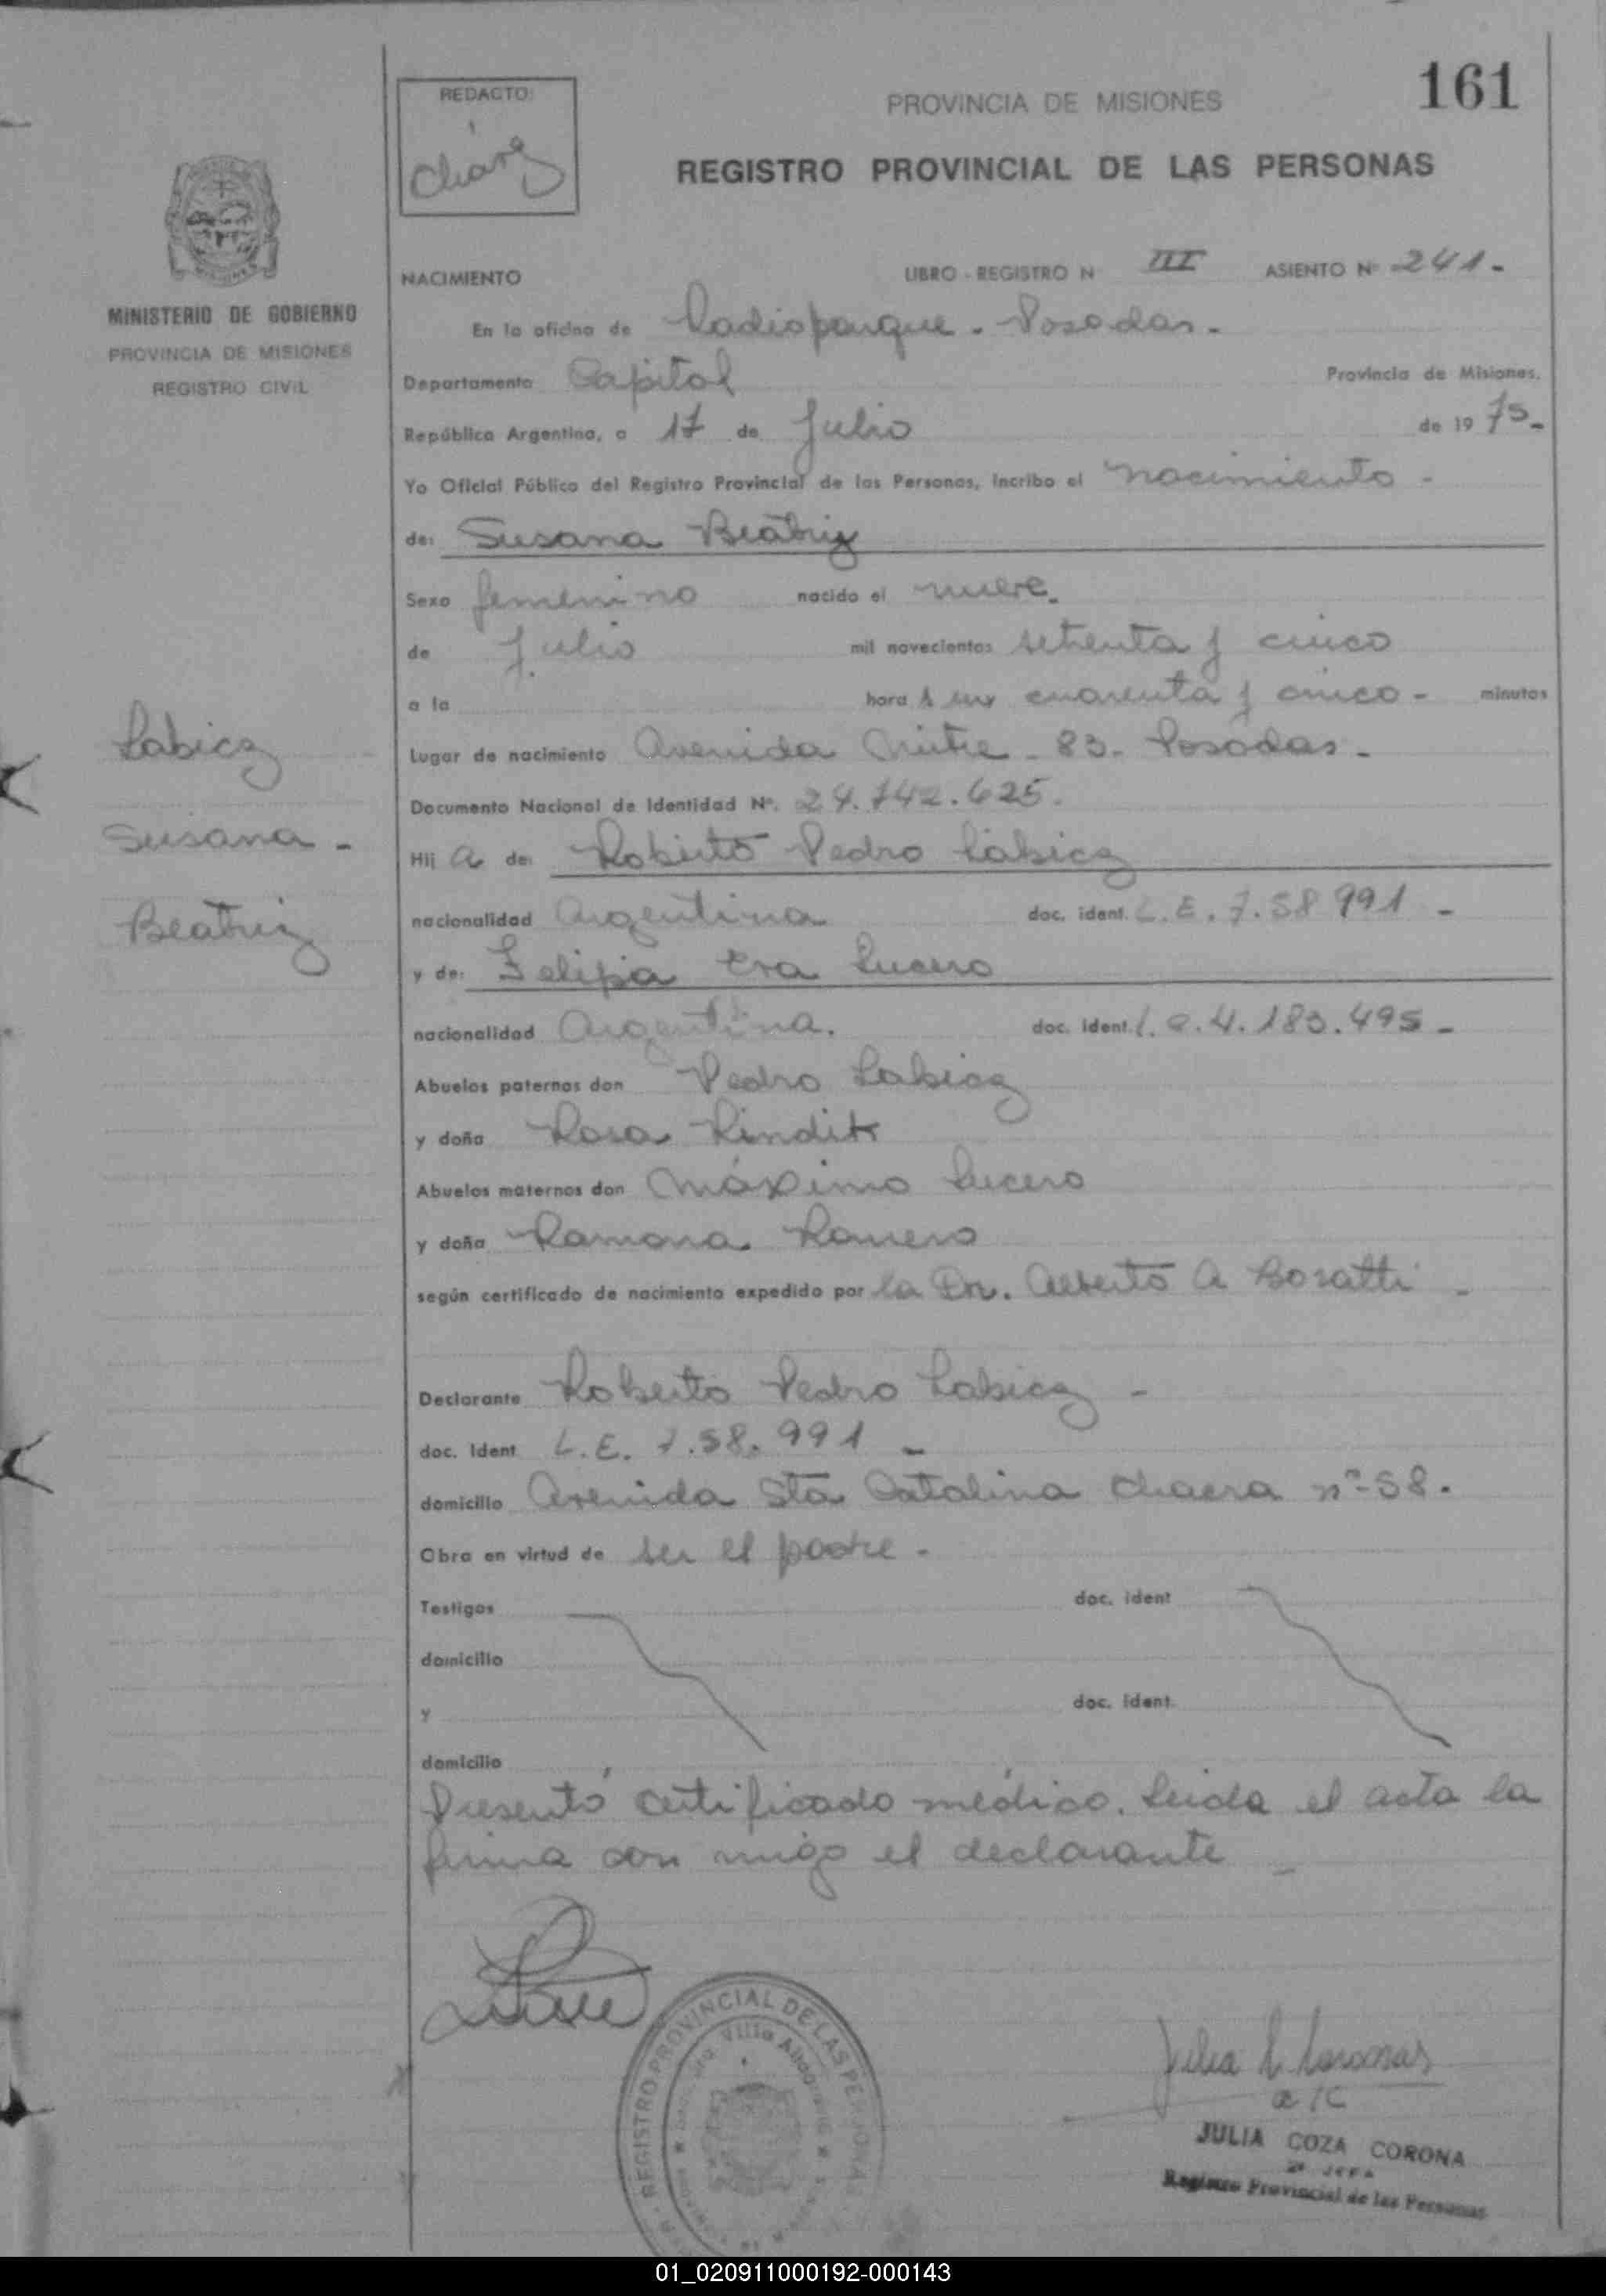 161
REDACTO:
Cháng
PROVINCIA DE MISIONES
REGISTRO PROVINCIAL DE LAS PERSONAS
MINISTERIO DE GOBIERNO
PROVINCIA DE MISIONES
REGISTRO CIVIL
NACIMIENTO LIBRO - REGISTRO N III ASIENTO Nº 241-
En la oficina de Radioparque - Posadas -
Departamento Capital Provincia de Misiones.
República Argentina, a 17 de Julio de 1975-
Yo Oficial Público del Registro Provincial de las Personas, incribo el nacimiento -
de: Susana Beatriz
Sexo femenino nacido el nueve
de Julio mil novecientos setenta y cinco
a la hora cuarenta y cinco - minutos
Labicz
Susana -
Beatriz
Lugar de nacimiento Avenida Mitre - 83 - Posadas -
Documento Nacional de Identidad Nº. 24.742.625.
Hij a de: Roberto Pedro Labicz
nacionalidad Argentina doc. ident. L.E. 7.58 991 -
y de: Felipa Eva Lucero
nacionalidad Argentina. doc. ident. l.c. 4.183.495 -
Abuelos paternos don Pedro Labicz
y doña Rosa Kindik
Abuelos maternos don Máximo Lucero
y doña Ramona Romero
según certificado de nacimiento expedido por la Dr. Alberto A Boratti -
Declarante Roberto Pedro Labicz -
doc. Ident L.E. 7.58.991 -
domicilio Avenida Sta Catalina Chacra nº 58.
Obra en virtud de ser el padre -
Testigos doc. ident
domicilio
y doc. ident.
domicilio
Presentó certificado médico. Leida el acta la
firma con migo el declarante -
REGISTRO PROVINCIAL DE LAS PERSONAS
Julia C. Coronas
a/c
JULIA COZA CORONA
2ª JEFA
Registro Provincial de las Personas
01_020911000192-000143